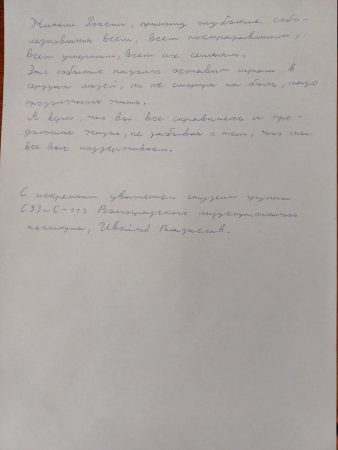 Жители России, приношу глубокие собо-
лезнования всем, всем пострадавшим,
всем умершим, всем их семьям.
Это событие надолго оставит шрам в
сердцах людей, но не смотря на боль, надо
продолжать жить.
Я верю, что вы все справитесь и про-
должите жизнь, не забывая о том, что мы
все вас поддерживаем.
С искренним уважением студент группы
индустриального
техникума,